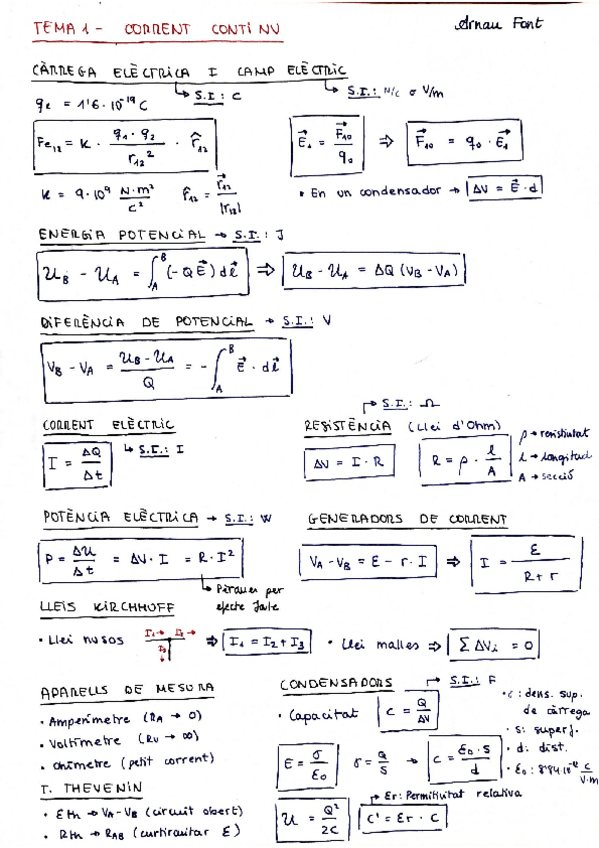 TEMA 1 - CORRENT CONTINU
Arnau Font
CÀRREGA ELÈCTRICA I CAMP ELÈCTRIC
S.I.: C
S.I.: N/C o V/m
qe = 1'6 · 10^-19 C
Fe₁₂ = K · q₁ · q₂ / r₁₂² · r̂₁₂
E⃗₁ = F⃗₁₀ / q₀ ⇒ F⃗₁₀ = q₀ · E⃗₁
K = 9 · 10⁹ N·m² / C²
r̂₁₂ = r⃗₁₂ / |r₁₂|
• En un condensador → ΔV = E⃗ · d
ENERGIA POTENCIAL → S.I.: J
U_B - U_A = ∫_A^B (-Q E⃗) dl⃗ ⇒ U_B - U_A = ΔQ (V_B - V_A)
DIFERÈNCIA DE POTENCIAL → S.I.: V
V_B - V_A = U_B - U_A / Q = - ∫_A^B E⃗ · dl⃗
CORRENT ELÈCTRIC
S.I.: I
I = ΔQ / Δt
S.I.: Ω
RESISTÈNCIA (Llei d'Ohm)
ΔV = I · R
R = ρ · l / A
ρ → resistivitat
l → longitud
A → secció
POTÈNCIA ELÈCTRICA → S.I.: W
P = ΔU / Δt = ΔV · I = R · I²
→ Pèrdues per
efecte Joule
GENERADORS DE CORRENT
V_A - V_B = E - r · I ⇒ I = E / R + r
LLEIS KIRCHHOFF
• Llei nusos I₁ → I₂ → I₃ ⇒ I₁ = I₂ + I₃
• Llei malles ⇒ Σ ΔVi = 0
APARELLS DE MESURA
• Amperímetre (R_A → 0)
• Voltímetre (R_V → ∞)
• Ohímetre (petit corrent)
T. THEVENIN
• Eth → V_A - V_B (circuit obert)
• Rth → R_AB (curtcircuitar E)
CONDENSADORS → S.I.: F
• Capacitat C = Q / ΔV
E = σ / ε₀
σ = Q / S → C = ε₀ · S / d
: dens. sup.
de càrrega
• S: superf.
• d: dist.
• ε₀: 8'84 · 10^-12 C / V·m
U = Q² / 2C
→ Er: Permitivitat relativa
C' = Er · C